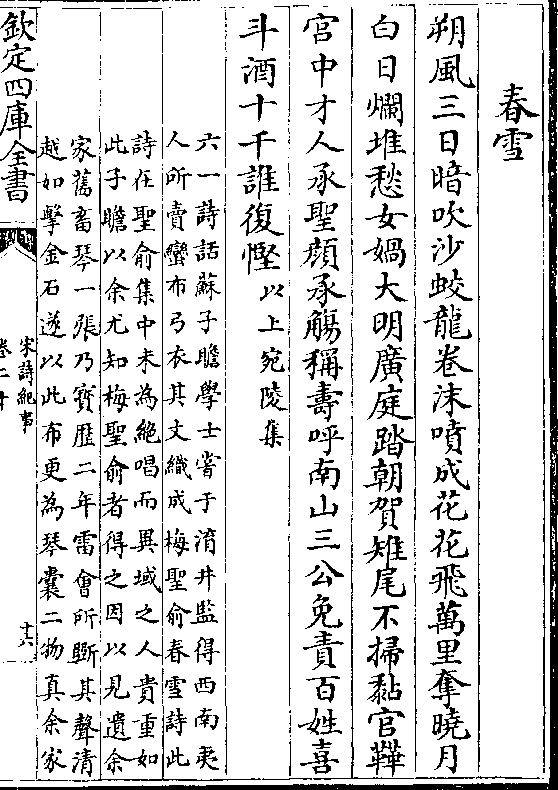 春雪
朔風三日暗吹沙蛟龍卷沫噴成花花飛萬里奪曉月
白日爛堆愁女媧大明廣庭踏朝賀雉尾不掃黏官鞾
宫中才人承聖顔承觴稱壽呼南山三公免責百姓喜
斗酒十千誰復慳以上宛陵集
六一詩話蘇子瞻學士嘗于淯井監得西南夷
人所賣蠻布弓衣其文織成梅聖俞春雪詩此
詩在聖俞集中未為絶唱而異域之人貴重如
此子瞻以余尤知梅聖俞者得之因以見遺余
家舊畜琴一張乃寳厯二年雷會所斵其聲清
越如擊金石遂以此布更為琴囊二物真余家
欽定四庫全書
宋詩紀事
卷二十
十六